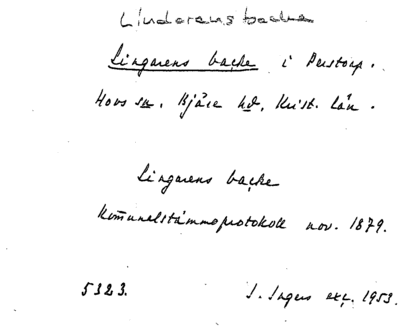 Linderens backe
Lingarens backe i Perstorp.
Hovs sn. Bjäre hd, Krist. län.
Lingarens backe
Kommunalstämmoprotokoll nov. 1879.
5323. J. Ingers exc. 1953.